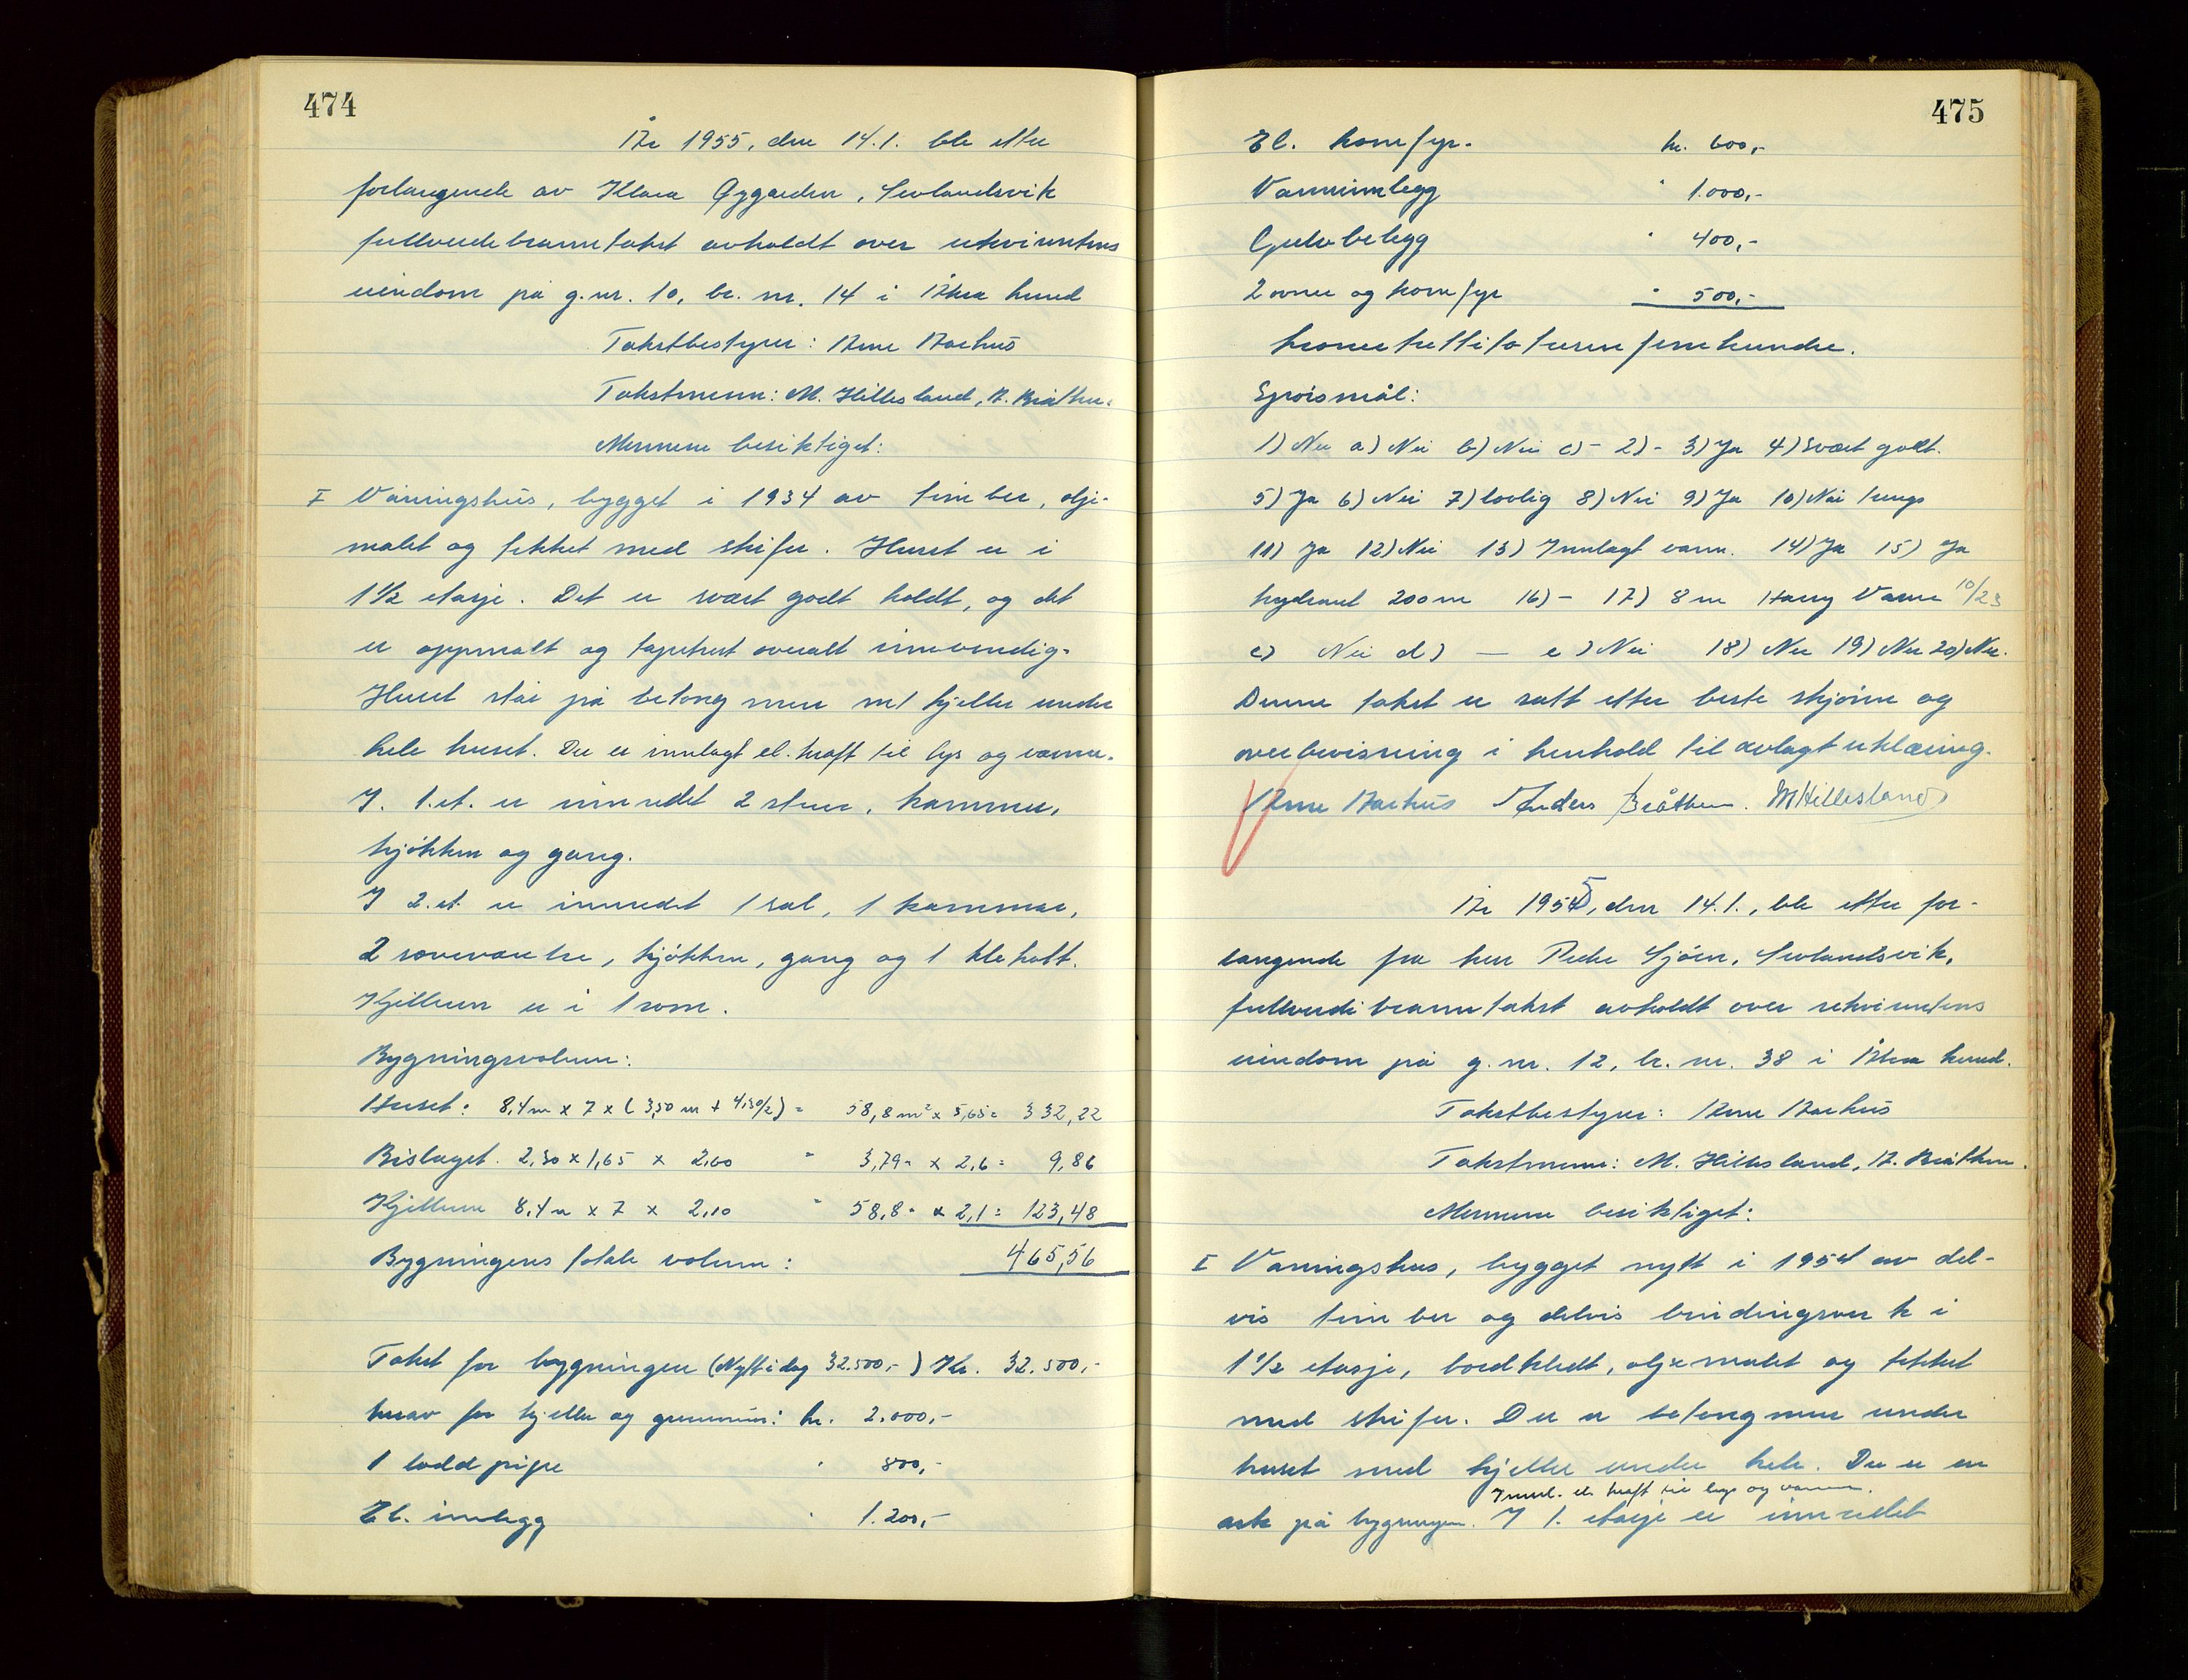 474
År 1955, den 14.1. ble etter
forlangende av Klara Øygarden, Sevlandsvik
fullverdebranntakst avholdt over rekvirentens
eiendom på g.nr. 10, br. nr. 14 i Åkra herred
Takstbestyrer: Arne Aarhus
Takstmenn: M. Hillesland, A. Bråthen.
Mennene besiktiget:
I Våningshus, bygget i 1934 av timber, olje-
malet og tekket med skifer. Huset er i
1 1/2 etasje. Det er svært godt holdt, og det
er oppmalt og tapetsert overalt innvendig.
Huset står på betong mur m/ kjeller under
hele huset. Der er innlagt el. kraft til lys og varme.
I. 1. et. er innredet 2 stuer, kammer,
kjøkken og gang.
I 2. et. er innredet 1 sal, 1 kammer,
2 soveværelse, kjøkken, gang og 1 klekott.
Kjelleren er i 1 rom.
Bygningsvolum:
Huset: 8,4 m x 7 x (3,50 m + 4,30/2) = 58,8 m² x 5,65 = 332,22
Bislaget. 2,30 x 1,65 x 2,60 " 3,79 " x 2,6 = 9,86
Kjelleren 8,4 m x 7 x 2,10 " 58,8 " x 2,1 = 123,48
Bygningens totale volum: 465,56
Takst for bygningen (Nytt i dag 32.500,-) Kr. 32.500,-
herav for kjeller og grunnmur: kr. 2.000,-
1 lodd pipe " 800,-
El. innlegg " 1.200,-
475
El. komfyr. kr. 600,-
Vanninnlegg " 1.000,-
Gulvbelegg " 400,-
2 ovner og komfyr " 500,-
kronertrettitotusenfemhundre.
Spørsmål:
1) Nei a) Nei b) Nei c) - 2) - 3) Ja 4) svært godt.
5) Ja 6) Nei 7) lovlig 8) Nei 9) Ja 10) Nei
11) Ja 12) Nei 13) Innlagt vann. 14) Ja 15) Ja
hydrant 200 m 16) - 17) 8 m Harry Vanne 10/23
c) Nei d) — e) Nei 18) Nei 19) Nei 20) Nei.
Denne takst er satt etter beste skjønn og
overbevisning i henhold til avlagt erklæring.
Arne Aarhus Anders Bråthen. M Hillesland
År 1955, den 14.1., ble etter for-
langende fra herr Peder Sjøen, Sevlandsvik,
fullverdi branntakst avholdt over rekvirentens
eiendom på g. nr. 12, br. nr. 38 i Åkra herred.
Takstbestyrer: Arne Aarhus
Takstmenn: M. Hillesland, A. Bråthen.
Mennene besiktiget:
I Våningshus, bygget nytt i 1954 av del-
vis timber og delvis bindingsverk i
1 1/2 etasje, bordkledt, oljemalet og tekket
med skifer. Der er betong mur under
huset med kjeller under hele. Der er en
Innl. el. kraft til lys og varme.
ark på bygningen. I 1. etasje er innredet